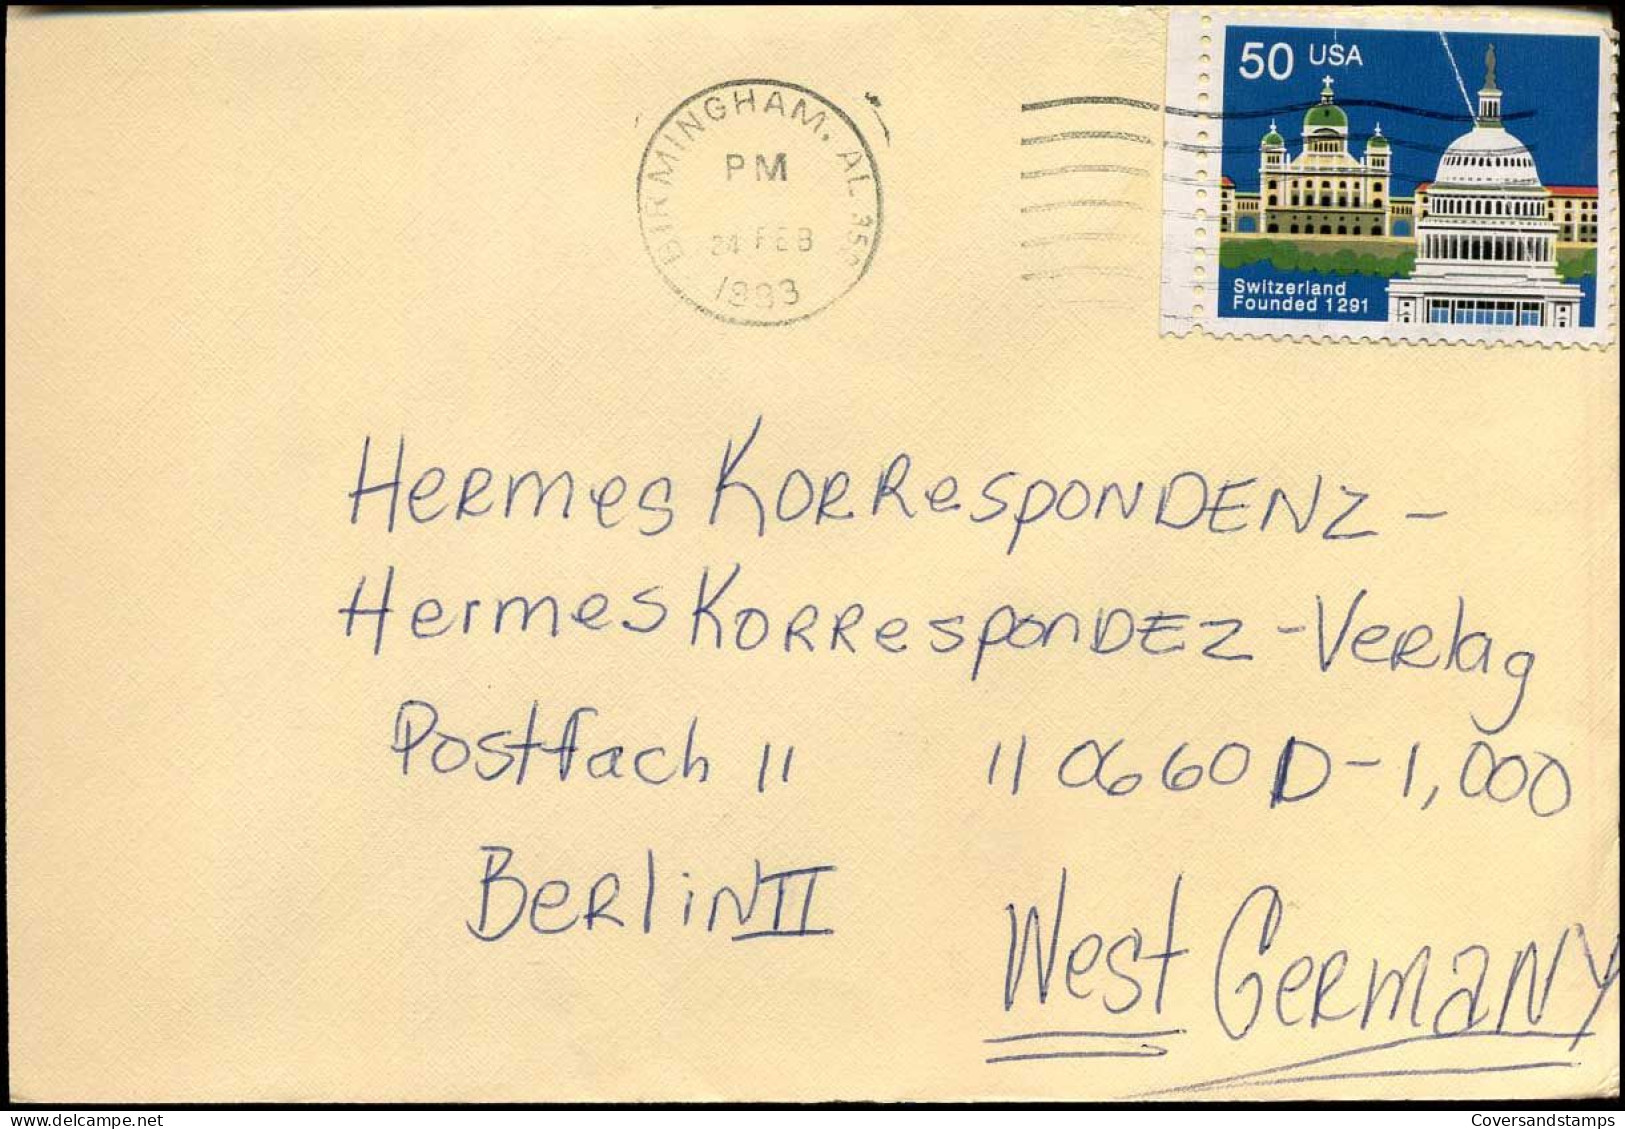 BIRMINGHAM, AL
PM
24 FEB
1993
50 USA
Switzerland
Founded 1291
Hermes Korrespondenz-
Hermes Korrespondez-Verlag
Postfach 11 110660 D-1,000
Berlin II
West Germany
Coversandstamps